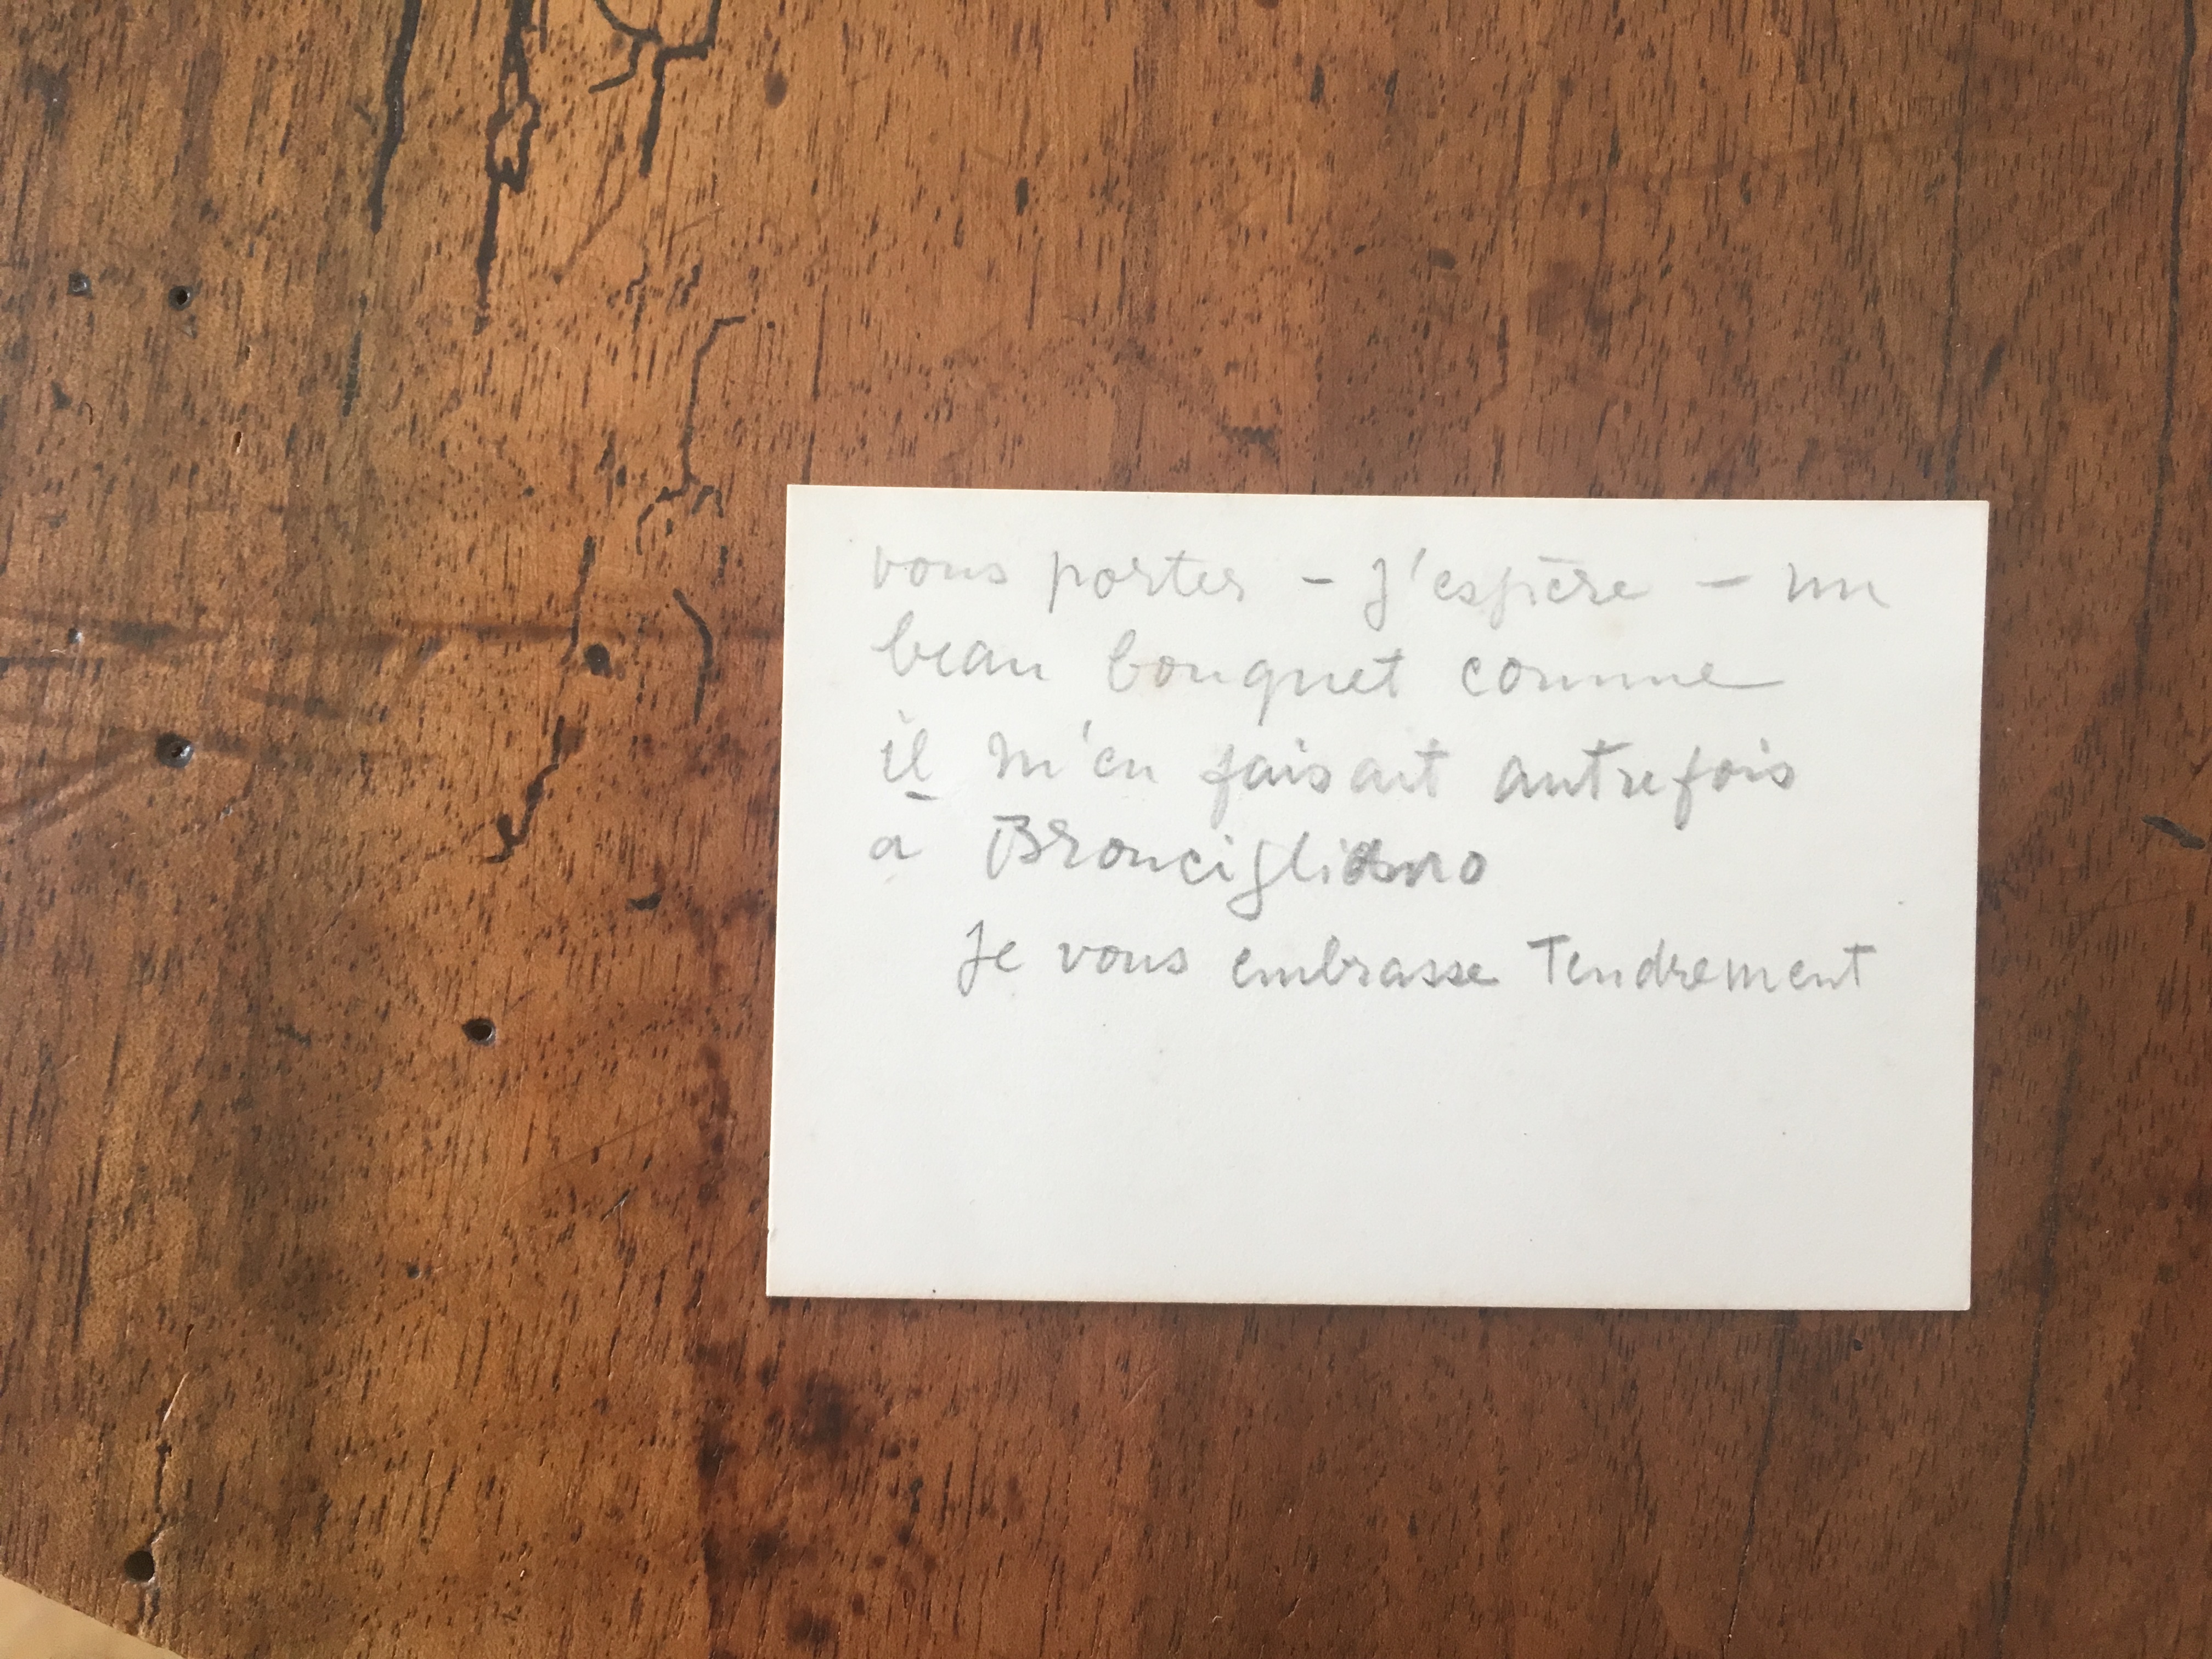 vous porter - J'espère - un
beau bouquet comme
il m'en faisait autrefois
a Broncigliano
Je vous embrasse Tendrement